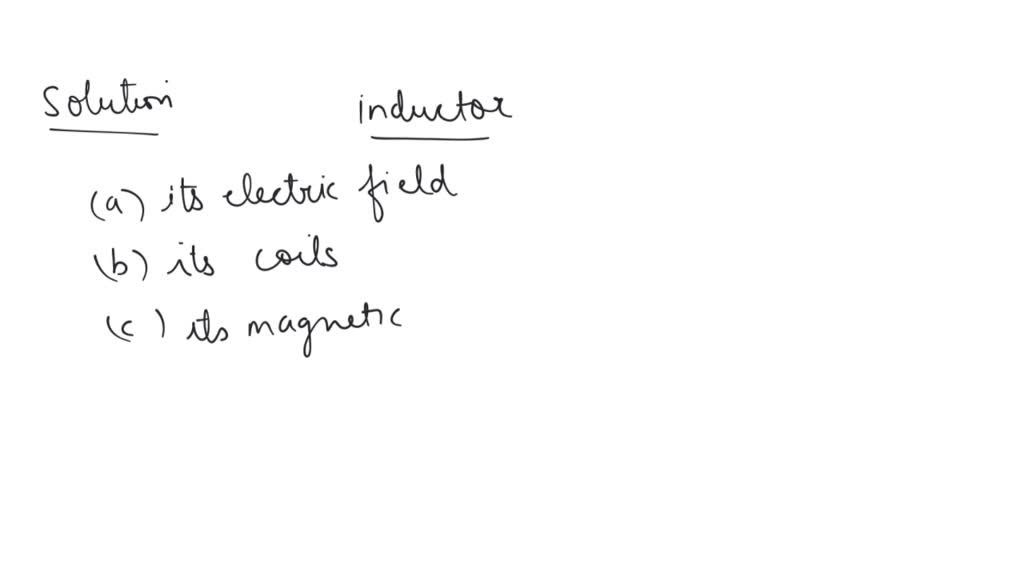 Solution inductor
(a) its electric field
(b) its coils
(c) its magnetic